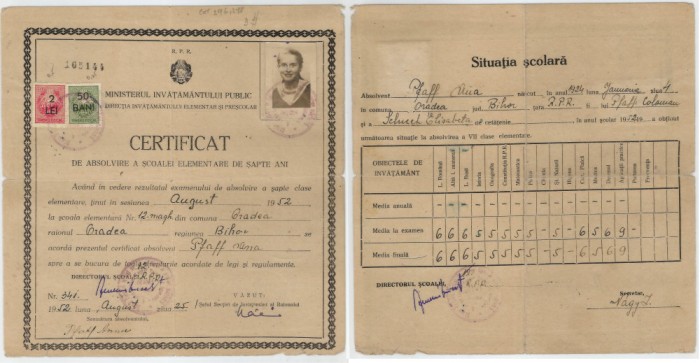 R.P.R.
MINISTERUL INVĂȚĂMÂNTULUI PUBLIC
DIRECȚIA INVĂȚĂMÂNTULUI ELEMENTAR ȘI PREȘCOLAR
2 LEI
50 BANI
CERTIFICAT
DE ABSOLVIRE A ȘCOALEI ELEMENTARE DE ȘAPTE ANI
Având în vedere rezultatul examenului de absolvire a șapte clase
elementare, ținut în sesiunea August 1952
la școala elementară Nr. 12 magh. din comuna Oradea
raional Oradea regiunea Bihor se
acordă prezentul certificat absolventului Pfaff Ana
care a se bucura de toate drepturile acordate de legi și regulamente.
DIRECTORUL ȘCOALEI
Nr. 340.
1952 luna August ziua 25
VĂZUT:
Șeful Secției de Învățământ al Raionului
Semnătura absolventului,
Situația școlară
Absolvent Pfaff Ana născut în anul 1934 luna Januarie ziua 4
în comuna Oradea jud. Bihor țara R.P.R. fi Pfaff Coloman
și a Elisabeta de cetățenie în anul școlar 1952 a obținut
următoarea situație la absolvirea a VII clase elementare.
OBIECTELE DE INVĂȚĂMÂNT
L. Română
L. Rusă
Istoria
Geografia
Constituția R.P.R.
Matematica
Fizica
Chimia
Șt. Naturii
Igiena
Cult. Fizică
Muzica
Desenul
Media anuală - - - - - - - - - - - - - -
Media la examen 6 6 6 5 5 5 5 5 - 5 - 6 5 6 9 -
Media finală 6 6 6 5 5 5 5 5 - 5 - 6 5 6 9 -
DIRECTORUL ȘCOALEI,
Secretar,
Nagy I.